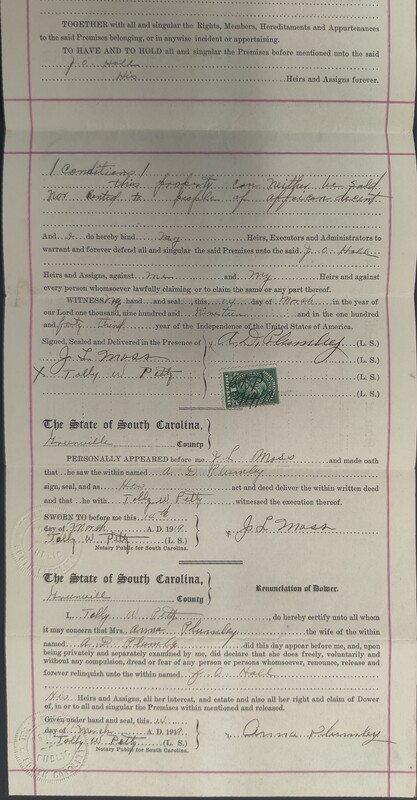 TOGETHER with all and singular the Rights, Members, Hereditaments and Appurtenances
to the said Premises belonging, or in anywise incident or appertaining.
TO HAVE AND TO HOLD all and singular the Premises before mentioned unto the said
J. A. Hall
His Heirs and Assigns forever.
( Conditions )
this property can neither ben sold
nor rented to people of affrican decent
And I do hereby bind my Heirs, Executors and Administrators to
warrant and forever defend all and singular the said Premises unto the said J. A. Hall
Heirs and Assigns, against me and my Heirs and against
every person whomsoever lawfully claiming or to claim the same or any part thereof.
WITNESS my hand and seal this day of March in the year of
our Lord one thousand, nine hundred and Nineteen and in the one hundred
and forty third year of the Independence of the United States of America.
Signed, Sealed and Delivered in the Presence of A. D. Plumbley (L. S.)
J. L. Moss (L. S.)
X Tally W Petty (L. S.)
The State of South Carolina,
Greenville County
PERSONALLY APPEARED before me J. L. Moss and made oath
that he saw the within named A. D. Plumley
sign, seal, and as His act and deed deliver the within written deed
and that he with Tolly W Petty witnessed the execution thereof.
SWORN to before me this
day of March A. D. 1919 J L Moss
Tolly W. Petty (L. S.)
Notary Public for South Carolina.
The State of South Carolina,
Renunciation of Dower.
Greenville County
I, Tolly W Petty, do hereby certify unto all whom
it may concern that Mrs. Anna Plumley the wife of the within
named A. D. Plumley did this day appear before me, and, upon
being privately and separately examined by me, did declare that she does freely, voluntarily and
without any compulsion, dread or fear of any person or persons whomsoever, renounce, release and
forever relinquish unto the within named J. A. Hall
His Heirs and Assigns, all her interest, and estate and also all her right and claim of Dower
of, in or to all and singular the Premises within mentioned and released.
Given under hand and seal, this
day of March A. D. 1919. Anna Plumley
Tolly W. Petty (L. S.)
Notary Public for South Carolina.